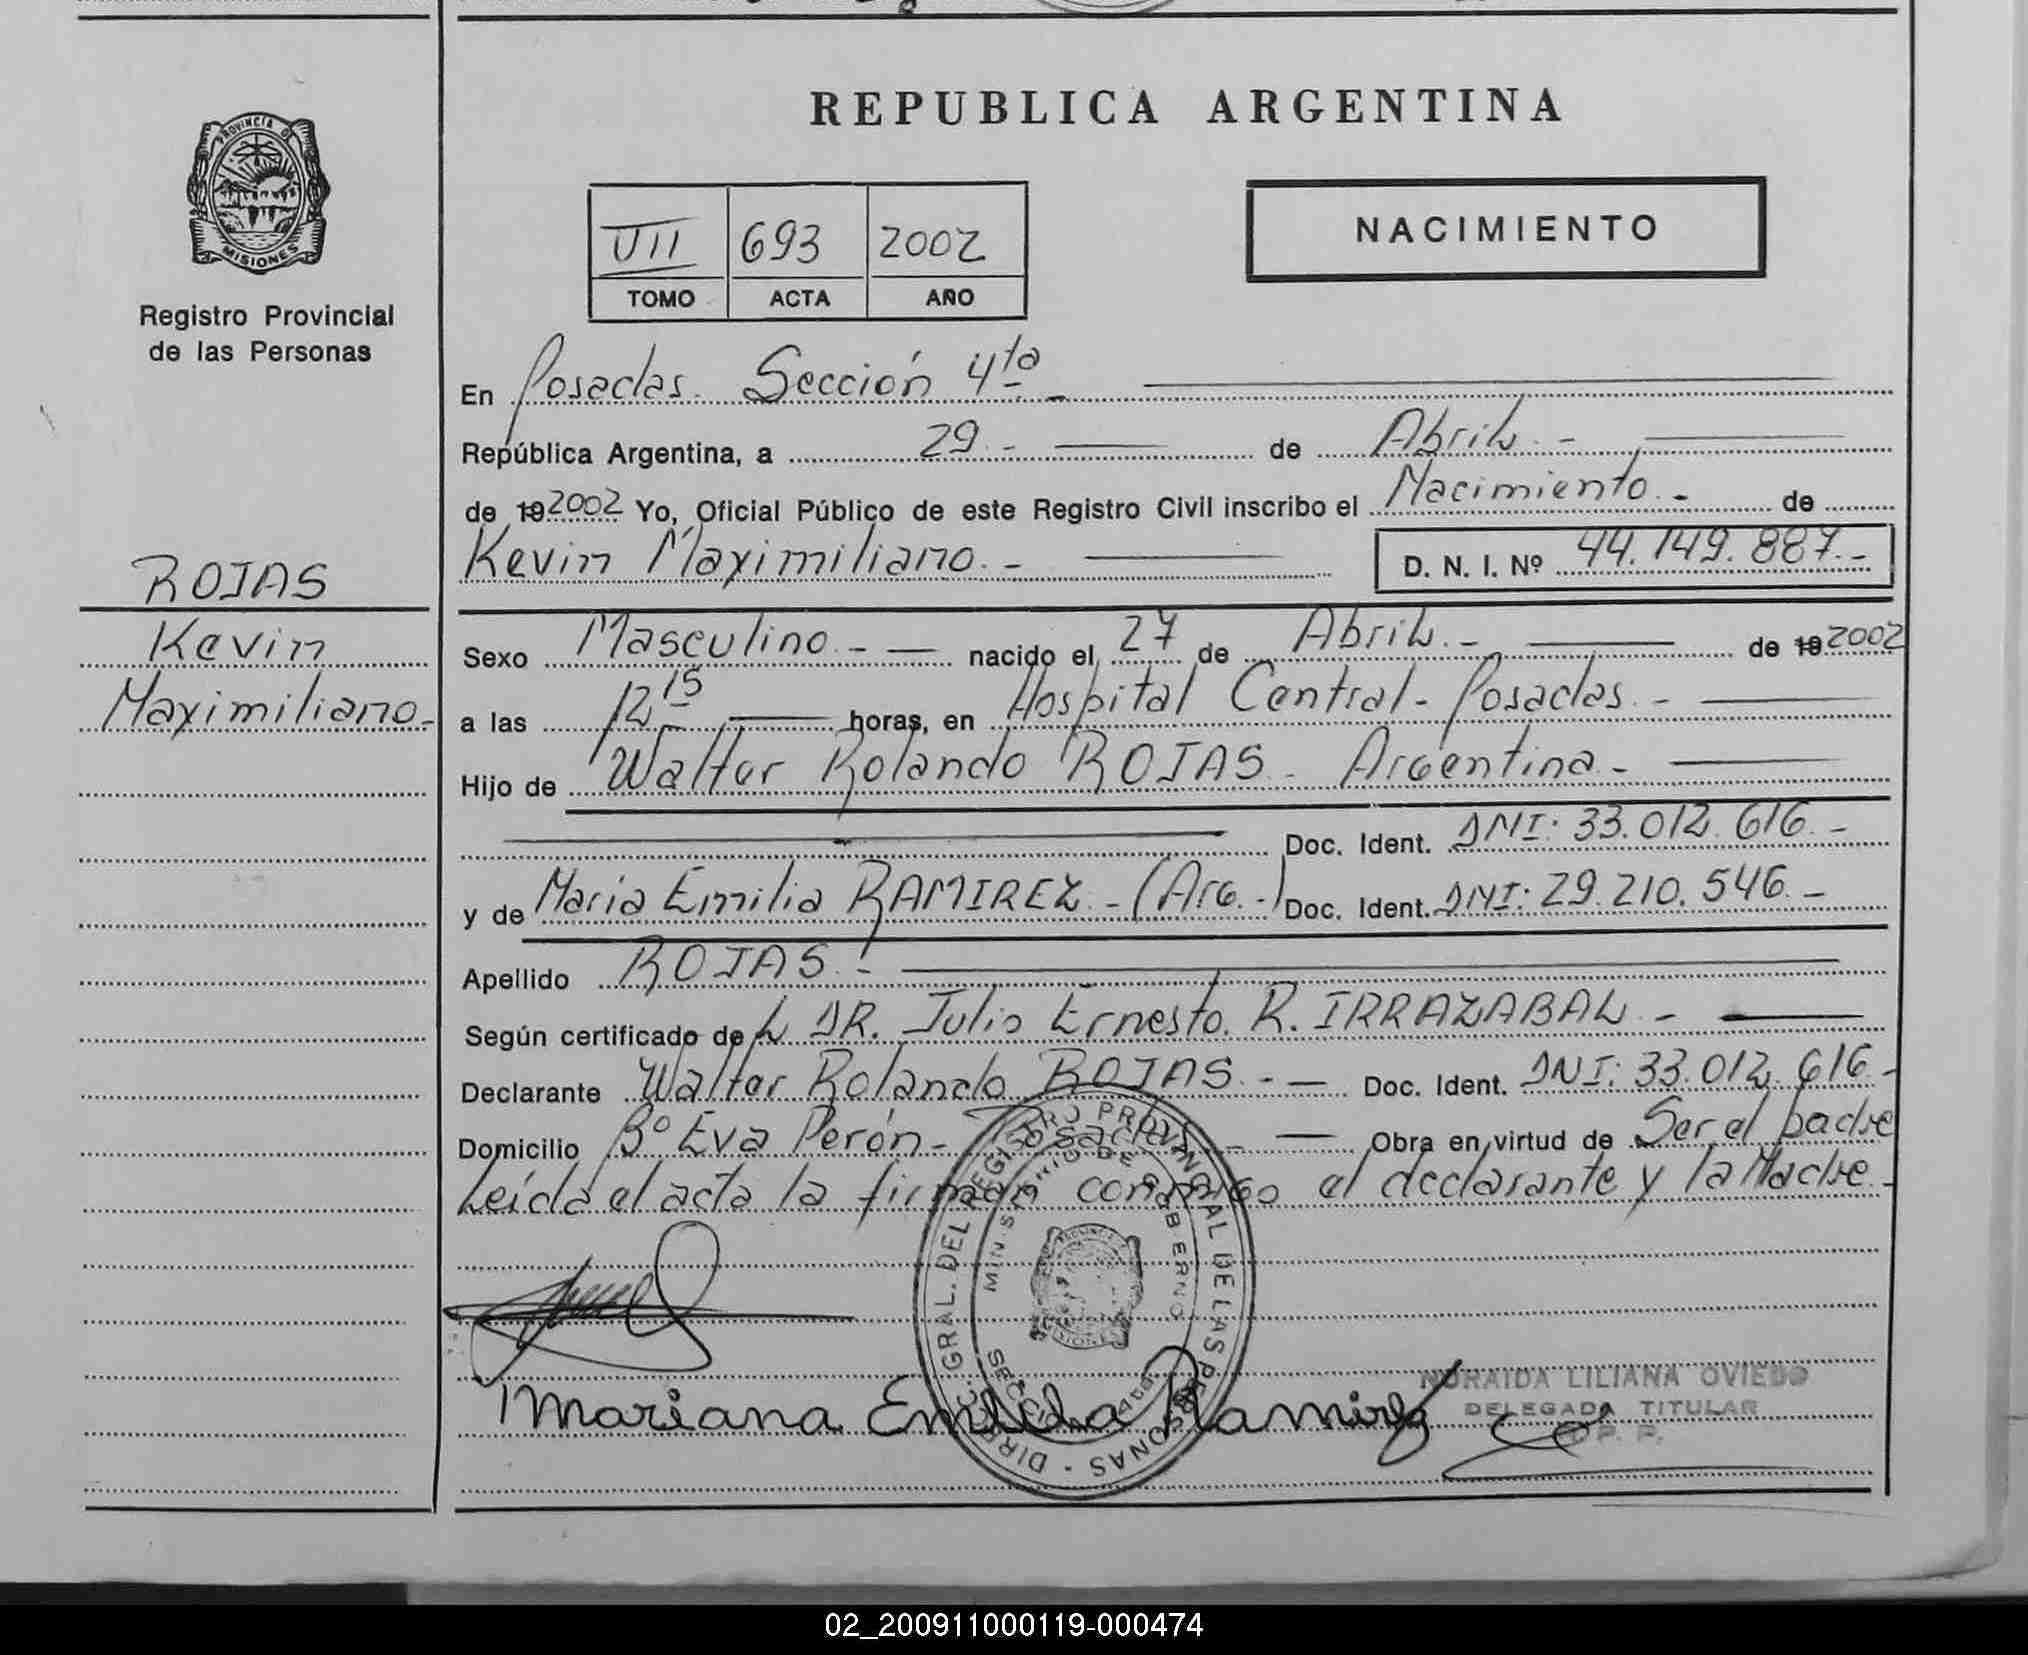 REPUBLICA ARGENTINA
PROVINCIA D
MISIONES
Registro Provincial
de las Personas
VII 693 2002
TOMO ACTA AÑO
NACIMIENTO
En Posadas Sección 4ta.-
República Argentina, a 29.- de Abril.-
de 19 2002 Yo, Oficial Público de este Registro Civil inscribo el Nacimiento.- de
Kevin Maximiliano.- D. N. I. Nº 44.149.887.-
ROJAS
Kevin
Maximiliano.-
Sexo Masculino.- nacido el 27 de Abril.- de 19 2002
a las 12 15 horas, en Hospital Central - Posadas.-
Hijo de Walter Rolando ROJAS - Argentina.-
Doc. Ident. DNI: 33.012.616.-
y de María Emilia RAMIREZ.- (Arg.-) Doc. Ident. DNI: 29.210.546.-
Apellido ROJAS.-
Según certificado de L DR. Julio Ernesto R. IRRAZABAL.-
Declarante Walter Rolando ROJAS.- Doc. Ident. DNI: 33.012.616.-
Domicilio Bº Eva Perón - Posadas.- Obra en virtud de Ser el padre
Leída el acta la firman conmigo el declarante y la Madre.-
DIREC. GRAL. DEL REGISTRO PROVINCIAL DE LAS PERSONAS
MINISTERIO DE GOBIERNO
SECCION 4ta.
Mariana Emilia Ramirez
NORAIDA LILIANA OVIEDO
DELEGADA TITULAR
R. P. P.
02_200911000119-000474